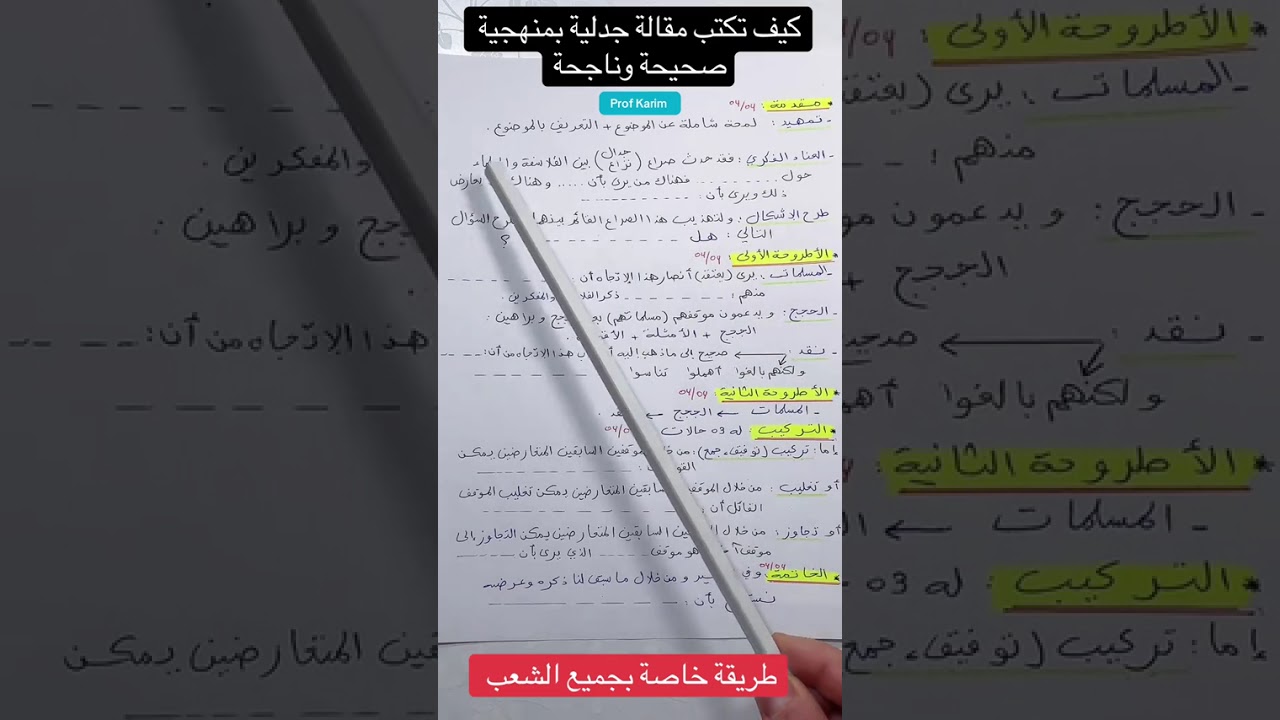 كيف تكتب مقالة جدلية بمنهجية
صحيحة وناجحة
Prof Karim
* مقدمة: 04/04
- تمهيد: لمحة شاملة عن الموضوع + التعريف بالموضوع.
- العناد الفكري: فقد حدث صراع (جدال نزاع) بين الفلاسفة
حول ........ فهناك من يرى بأن ..... وهناك يعارض
ذلك ويرى بأن: --------
طرح الإشكال: ولتهذيب هذا الصراع القائم بينهما السؤال
التالي: هل -------- ؟
* الأطروحة الأولى: 04/04
- المسلمات: يرى (يعتقد) أنصار هذا الإتجاه أن: -------
منهم: -------- ذكر والمفكرين.
- الحجج: ويدعمون موقفهم (مسلماتهم) وبراهين:
الحجج + الأمثلة +
- نقد: صحيح إلى ما ذهب إليه هذا الاتجاه من أن: -- --
ولكنهم بالغوا أهملوا تناسوا --------
* الأطروحة الثانية: 04/04
- المسلمات ← الحجج ← نقد.
* التركيب: له 03 حالات
إما: تركيب (توفيق، جمع): من الموقفين السابقين المتعارضين يمكن
--------
أو تغليب: من خلال السابقين المتعارضين يمكن تغليب الموقف
القائل أن: --------
أو تجاوز: من خلال السابقين المتعارضين يمكن التجاوز إلى
هو موقف ----- الذي يرى بأن ------
* الخاتمة: 04/04 ومن خلال ما سبق لنا ذكره وعرضه
بأن: --------
طريقة خاصة بجميع الشعب